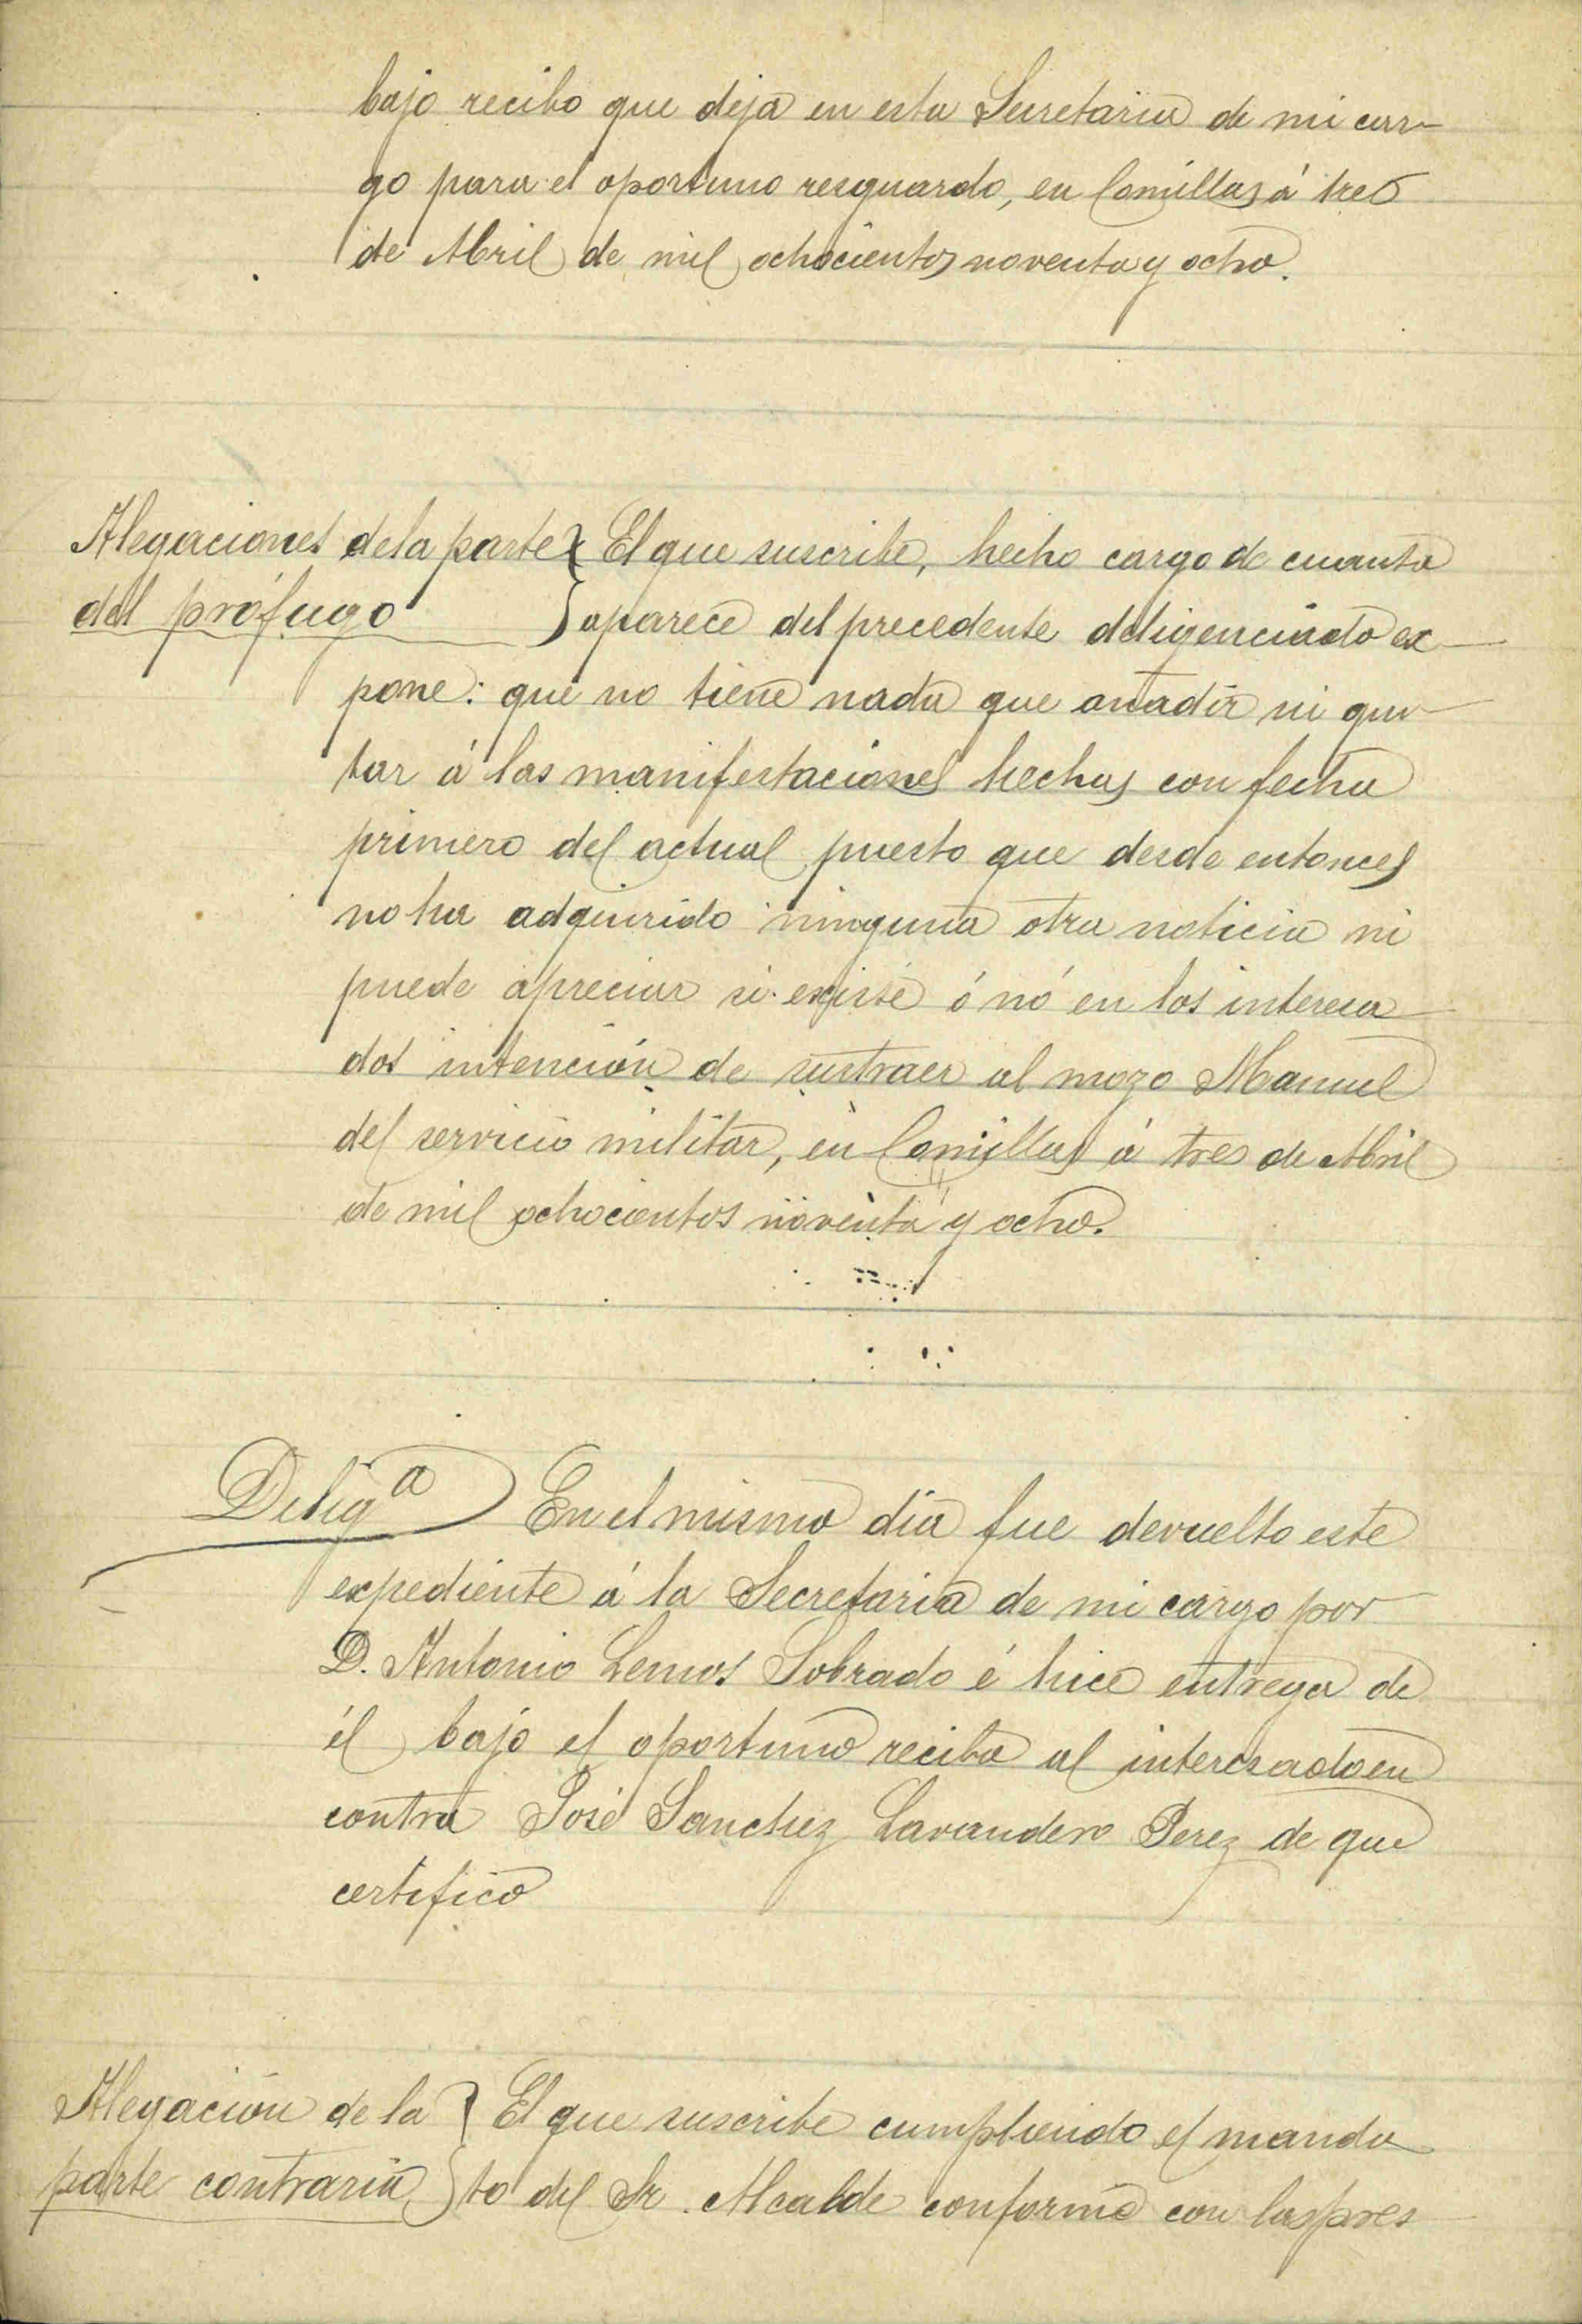 bajo recibo que deja en esta Secretaria de mi car-
go para el oportuno resguardo, en Comillas á tres
de Abril de mil ochocientos noventa y ocho.
Alegaciones de la parte } El que suscribe, hecho cargo de cuanto
del prófugo } aparece del precedente deligenciado ex-
pone: que no tiene nada que anadir ni qui-
tar á las manifestaciones hechas con fecha
primero del actual puesto que desde entonces
no ha adquirido ninguna otra noticia ni
puede apreciar si existe ó nó en los interesa-
dos intención de sustraer al mozo Manuel
del servicio militar, en Comillas á tres de Abril
de mil ochocientos noventa y ocho.
Delig.a) En el mismo dia fue devuelto este
expediente á la Secretaria de mi cargo por
D. Antonio Lemos Sobrado é hice entrega de
él bajo el oportuno recibo al interesado en
contra José Sanchez Lavandero Perez de que
certifico
Alegación de la } El que suscribe cumpliendo el manda
parte contraria } to del Sr. Alcalde conforme con las pres